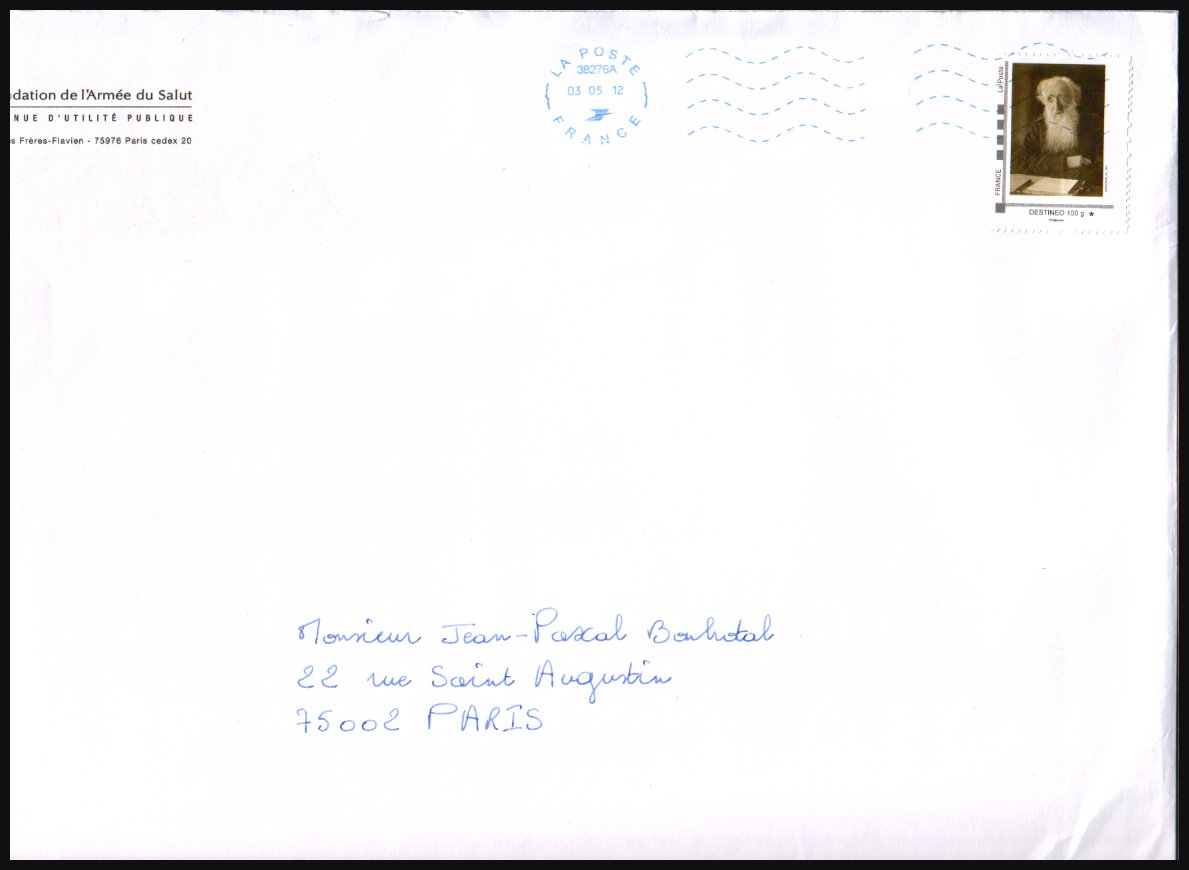 ndation de l'Armée du Salut
NUE D'UTILITÉ PUBLIQUE
s Frères-Flavien - 75976 Paris cedex 20
LA POSTE
38276A
03 05 12
FRANCE
La Poste
FRANCE
DESTINEO 100 g *
Monsieur Jean-Pascal Bonhotal
22 rue Saint Augustin
75002 PARIS